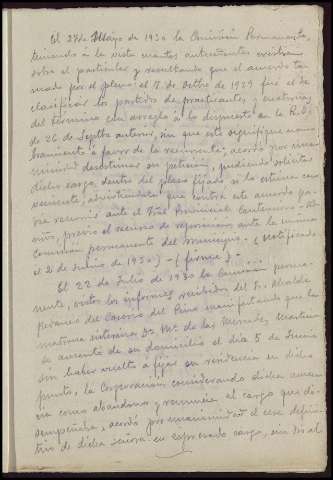 El 27 de Mayo de 1930 la Comisión Permanente,
teniendo á la vista cuantos antecedentes existían
sobre el particular y resultando que el acuerdo to-
mado por el pleno el 7 de Octbre de 1929 fué el de
clasificar los partidos de practicantes y matronas
del término con arreglo á lo dispuesto en la R.O.
de 26 de Septbre anterior, sin que esto signifique nom-
bramiento á favor de la recurrente, acordó por unani-
midad desestimar su petición, pudiendo solicitar
dicho cargo, dentro del plazo fijado si lo estima con-
veniente, advirtiéndole que contra este acuerdo po-
drá recurrir ante el Tral Provincial Contencioso-Ad-
vo, previo el recurso de reposición ante la misma
Comisión permanente del Municipio. (Notificado
el 2 de Junio de 1930)
El 22 de Julio de 1930 la Comisión perma-
nente, vistos los informes recibidos del Sr. Alcalde
pedáneo del Caserío del Pino manifestando que la
matrona interina Dª Mª de las Mercedes
se ausentó de su domicilio el día 5 de Junio
sin haber vuelto á fijar su residencia en dicho
punto, la Corporación considerando dicha ausen-
cia como abandono y renuncia al cargo que de-
sempeñaba, acordó por unanimidad el cese defini-
tivo de dicha señora en expresado cargo, sin dar